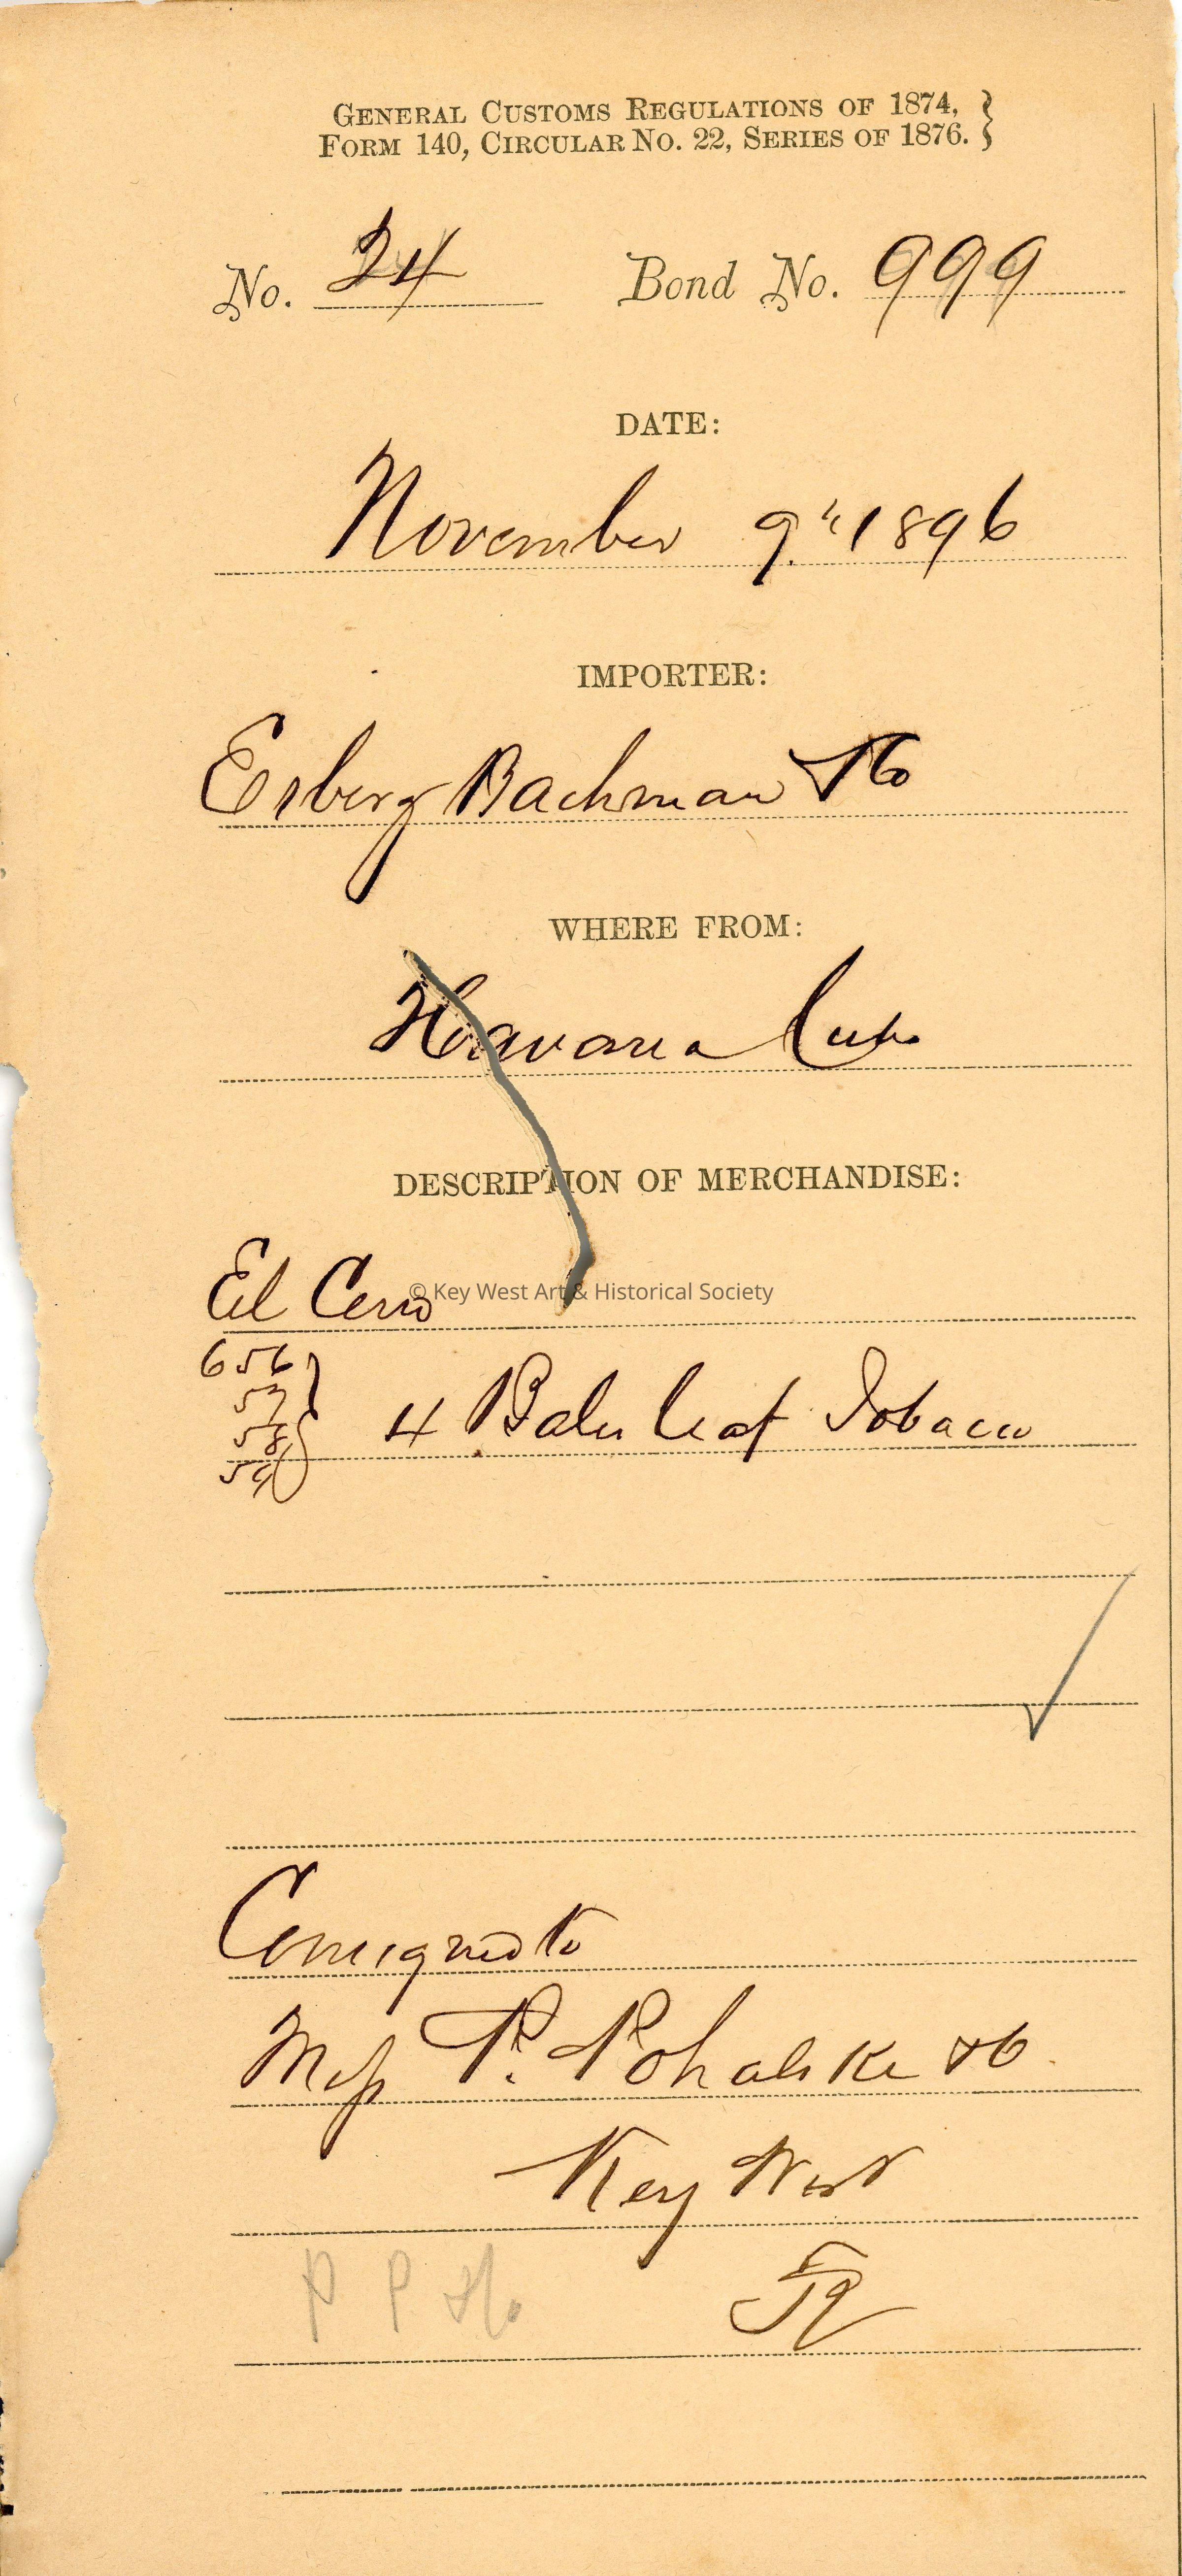 GENERAL CUSTOMS REGULATIONS OF 1874, }
FORM 140, CIRCULAR NO. 22, SERIES OF 1876.
No. 24 Bond No. 999
DATE:
November 9" 1896
IMPORTER:
Esberg Bachman & Co
WHERE FROM:
Havana Cuba
DESCRIPTION OF MERCHANDISE:
El Cerro
© Key West Art & Historical Society
656
57
58
59
4 Bales leaf Tobacco
Consigned to
Mess P. Pohalski & Co.
Key West